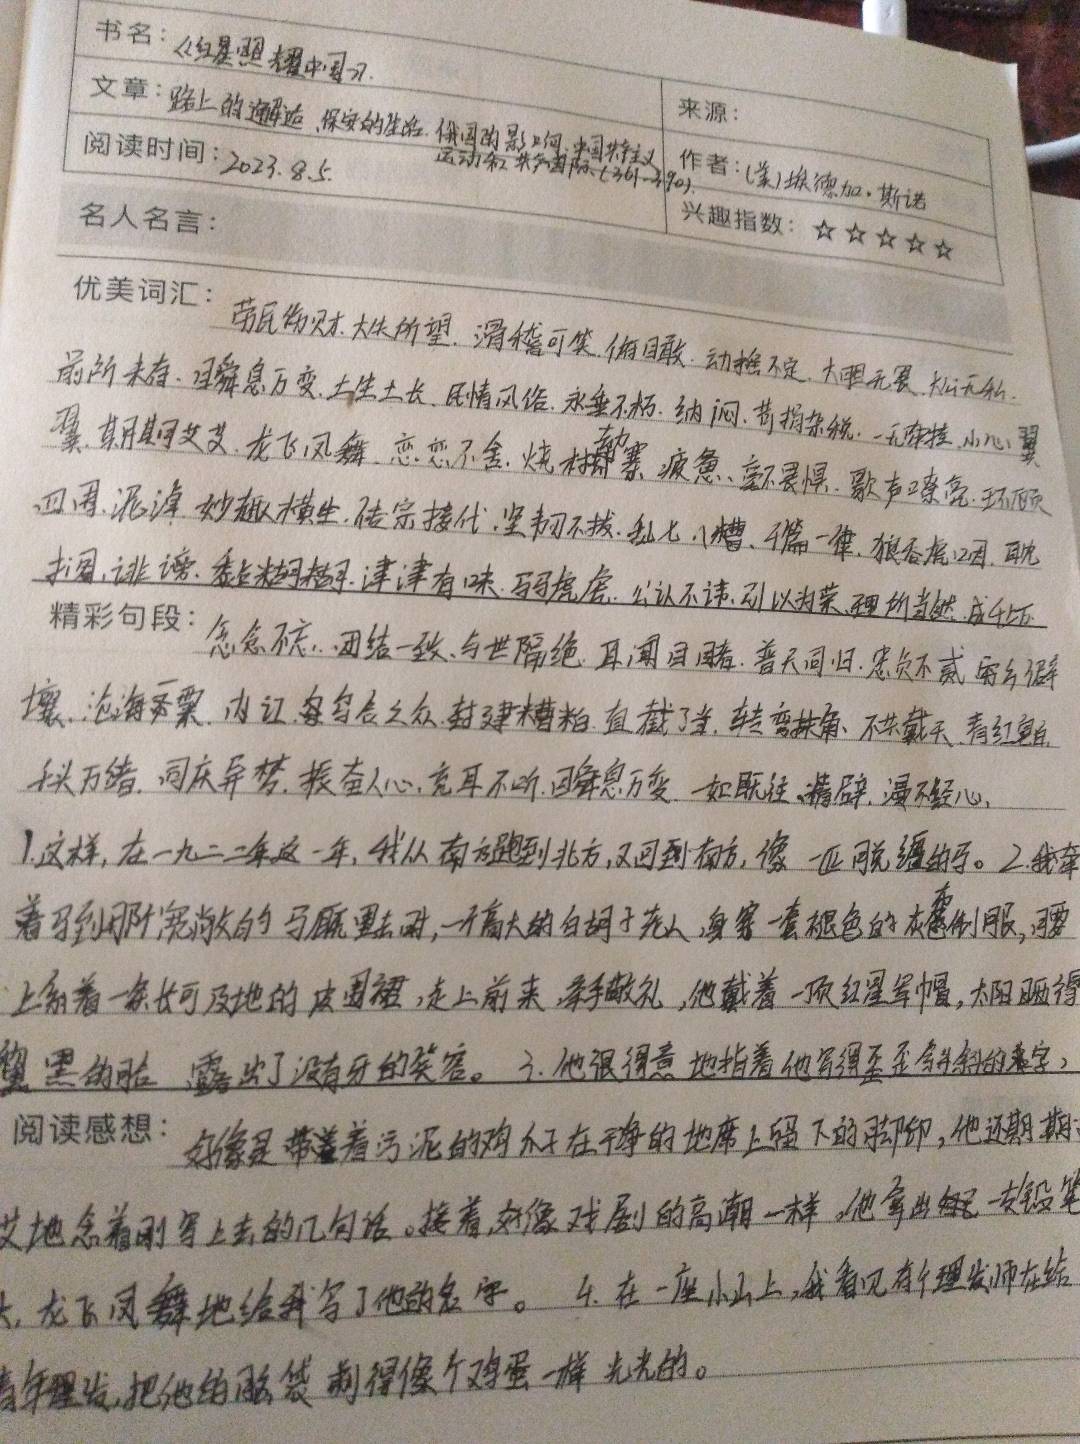 书名：《红星照耀中国》.
来源：
文章：路上的邂逅、保安的生活. 俄国的影响. 中国共产主义
运动和共产国际.(361-390).
作者：(美)埃德加·斯诺
阅读时间：2023.8.5.
兴趣指数：☆☆☆☆☆
名人名言：
优美词汇：劳民伤财. 大失所望. 滑稽可笑. 动摇不定. 大胆无畏. 大公无私.
前所未有. 瞬息万变. 土生土长. 民情风俗. 永垂不朽. 纳闷. 苛捐杂税. 小心翼
翼. 期期艾艾. 龙飞凤舞. 恋恋不舍. 疲惫、毫不畏惧. 歌声嘹亮. 环顾
四周. 泥泞 妙趣横生. 传宗接代. 坚韧不拔. 乱七八糟、千篇一律. 狼吞虎咽. 耽
搁, 诽谤. 黏黏糊糊. 津津有味. 马马虎虎. 公认不讳. 引以为荣. 理所当然.
精彩句段：念念不忘. 团结一致、与世隔绝. 耳闻目睹. 普天同归. 忠贞不贰 穷乡僻
壤. 沧海一粟. 内讧. 乌合之众. 封建糟粕. 直截了当. 转弯抹角、不共戴天. 青红皂白.
千头万绪. 同床异梦. 振奋人心. 充耳不听. 瞬息万变 一如既往. 精辟. 漫不经心.
1.这样, 在一九二二年这一年, 我从南方跑到北方, 又回到南方, 像一匹脱缰的马。2.我牵
着马到那阡宽敞的马厩里去时, 一个高大的白胡子老人, 身穿一套褪色的灰布制服, 腰
上系着一条长可及地的皮围裙, 走上前来, 举手敬礼, 他戴着一顶红星军帽, 太阳晒得
黧黑的脸 露出了没有牙的笑容。3. 他很得意地指着他写得歪歪斜斜的字,
阅读感想：好像是带着污泥的鸡爪子在干净的地席上留下的脚印, 他还期期
艾地念着刚写上去的几句话。接着, 好像戏剧的高潮一样。他拿出一支铅笔
大, 龙飞凤舞地给我写了他的名字。 4. 在一座小山上, 我看见有个理发师在给
青年理发, 把他的脑袋剃得像个鸡蛋一样光光的。